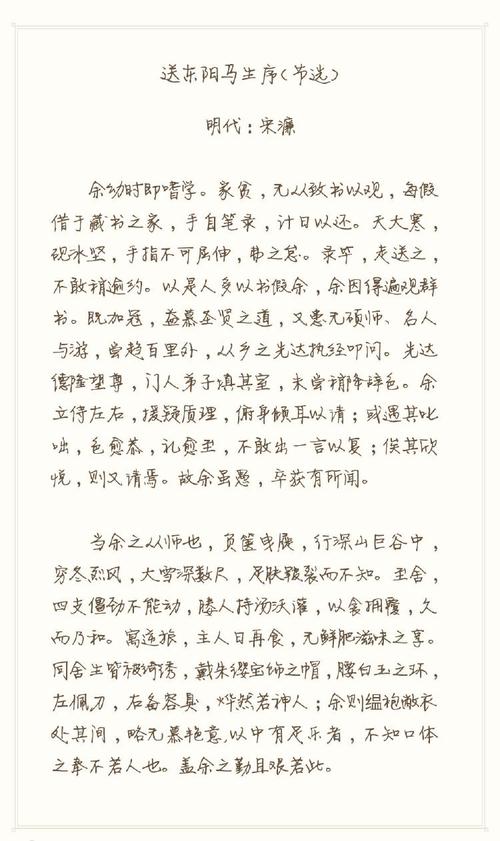 送东阳马生序(节选)
明代:宋濂
余幼时即嗜学。家贫,无从致书以观,每假
借于藏书之家,手自笔录,计日以还。天大寒,
砚冰坚,手指不可屈伸,弗之怠。录毕,走送之,
不敢稍逾约。以是人多以书假余,余因得遍观群
书。既加冠,益慕圣贤之道,又患无硕师、名人
与游,尝趋百里外,从乡之先达执经叩问。先达
德隆望尊,门人弟子填其室,未尝稍降辞色。余
立侍左右,援疑质理,俯身倾耳以请;或遇其叱
咄,色愈恭,礼愈至,不敢出一言以复;俟其欣
悦,则又请焉。故余虽愚,卒获有所闻。
当余之从师也,负箧曳屣,行深山巨谷中,
穷冬烈风,大雪深数尺,足肤皲裂而不知。至舍,
四支僵劲不能动,媵人持汤沃灌,以衾拥覆,久
而乃和。寓逆旅,主人日再食,无鲜肥滋味之享。
同舍生皆被绮绣,戴朱缨宝饰之帽,腰白玉之环,
左佩刀,右备容臭,烨然若神人;余则缊袍敝衣
处其间,略无慕艳意,以中有足乐者,不知口体
之奉不若人也。盖余之勤且艰若此。